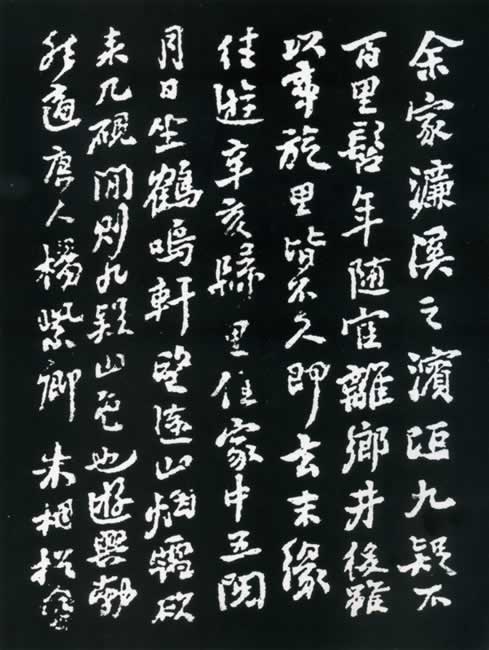 余家濂溪之濱距九疑不
百里髫年隨宦離鄉井後雖
以事旋里皆不久即去未緣
往遊辛亥歸里住家中五閱
月日坐鶴鳴軒望遠山烟靄欲
来几硯間則九疑山色也遊興勃
然適唐人楊紫卿 朱桐松